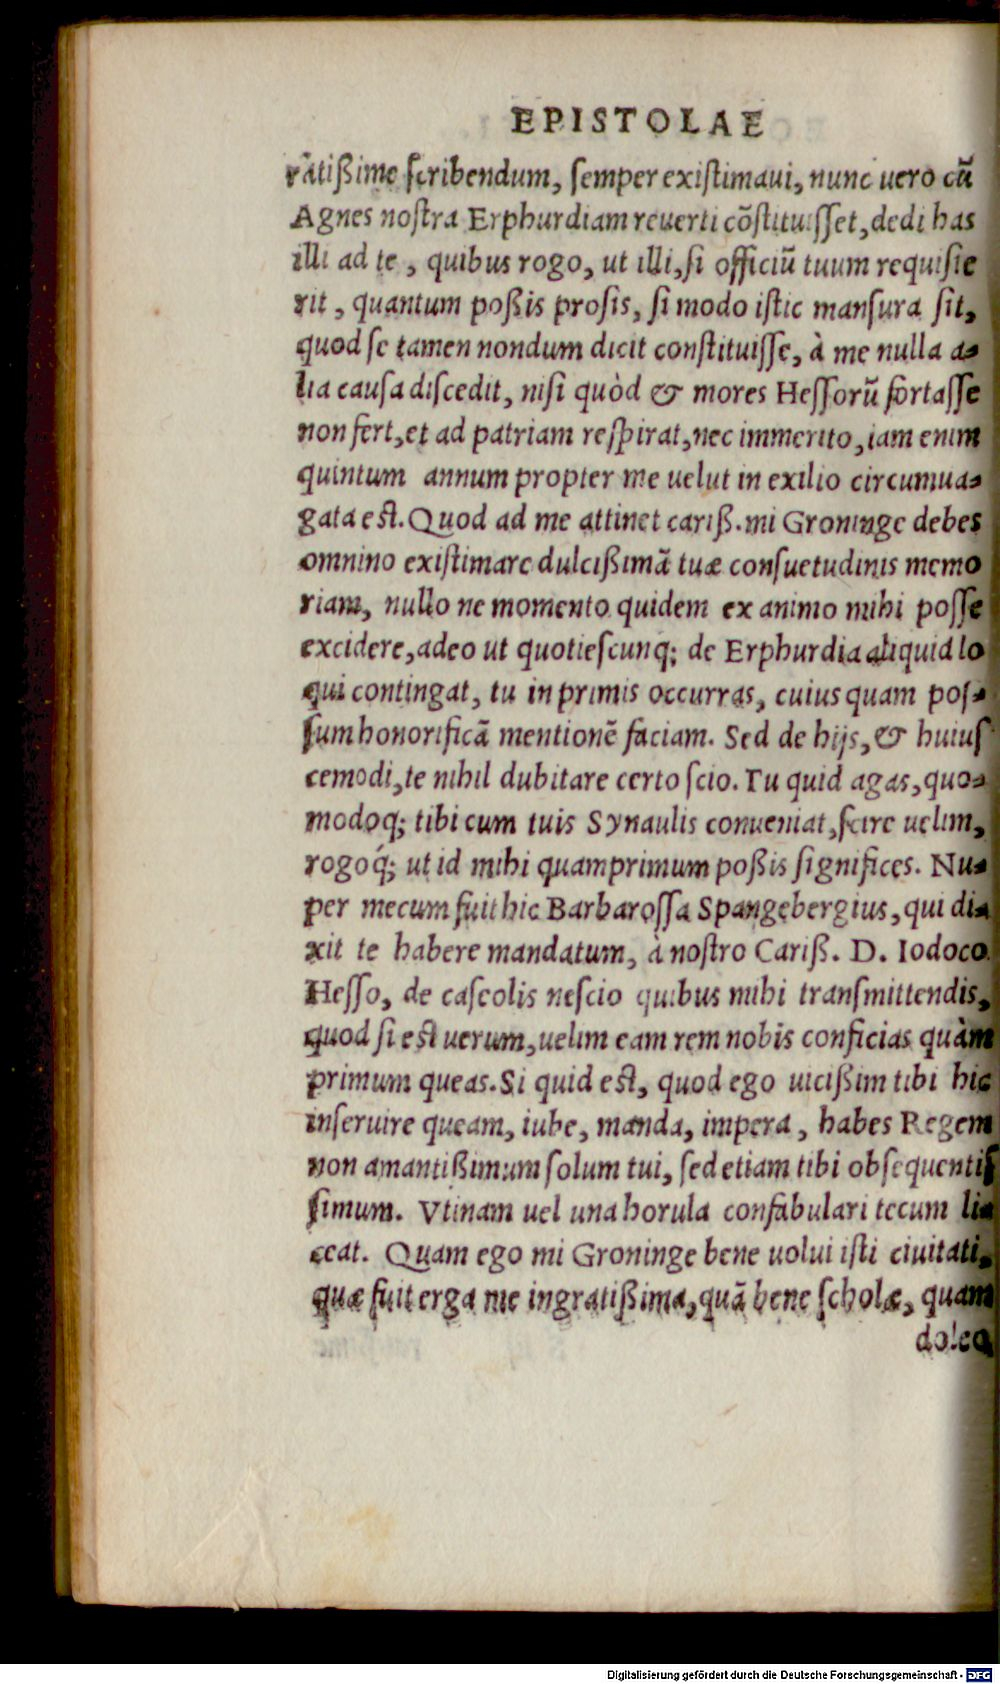 EPISTOLAE
ratißime scribendum, semper existimaui, nunc uero cū
Agnes nostra Erphurdiam reuerti cōstituisset, dedi has
illi ad te, quibus rogo, ut illi, si officiū tuum requisie
rit, quantum poßis prosis, si modo istic mansura sit,
quod se tamen nondum dicit constituisse, à me nulla a-
lia causa discedit, nisi quòd & mores Hessorū fortasse
non fert, et ad patriam respirat, nec immerito, iam enim
quintum annum propter me uelut in exilio circumua-
gata est. Quod ad me attinet cariß. mi Groninge debes
omnino existimare dulcißimā tuæ consuetudinis memo
riam, nullo ne momento quidem ex animo mihi posse
excidere, adeo ut quotiescunq; de Erphurdia aliquid lo
qui contingat, tu inprimis occurras, cuius quam pos-
sum honorificā mentionē faciam. Sed de hijs, & huius
cemodi, te nihil dubitare certo scio. Tu quid agas, quo-
modoq; tibi cum tuis Synaulis conueniat, scire uelim,
rogoq́; ut id mihi quamprimum poßis significes. Nu-
per mecum fuit hic Barbarossa Spangebergius, qui di-
xit te habere mandatum, à nostro Cariß. D. Iodoco
Hesso, de caseolis nescio quibus mihi transmittendis,
quod si est uerum, uelim eam rem nobis conficias quàm
primum queas. Si quid est, quod ego uicißim tibi hic
inseruire queam, iube, manda, impera, habes Regem
non amantißimum solum tui, sed etiam tibi obsequentis
simum. Vtinam uel una horula confabulari tecum li-
ceat. Quam ego mi Groninge bene uolui isti ciuitati,
quæ fuit erga me ingratißima, quā bene scholæ, quam
doleo
Digitalisierung gefördert durch die Deutsche Forschungsgemeinschaft - DFG